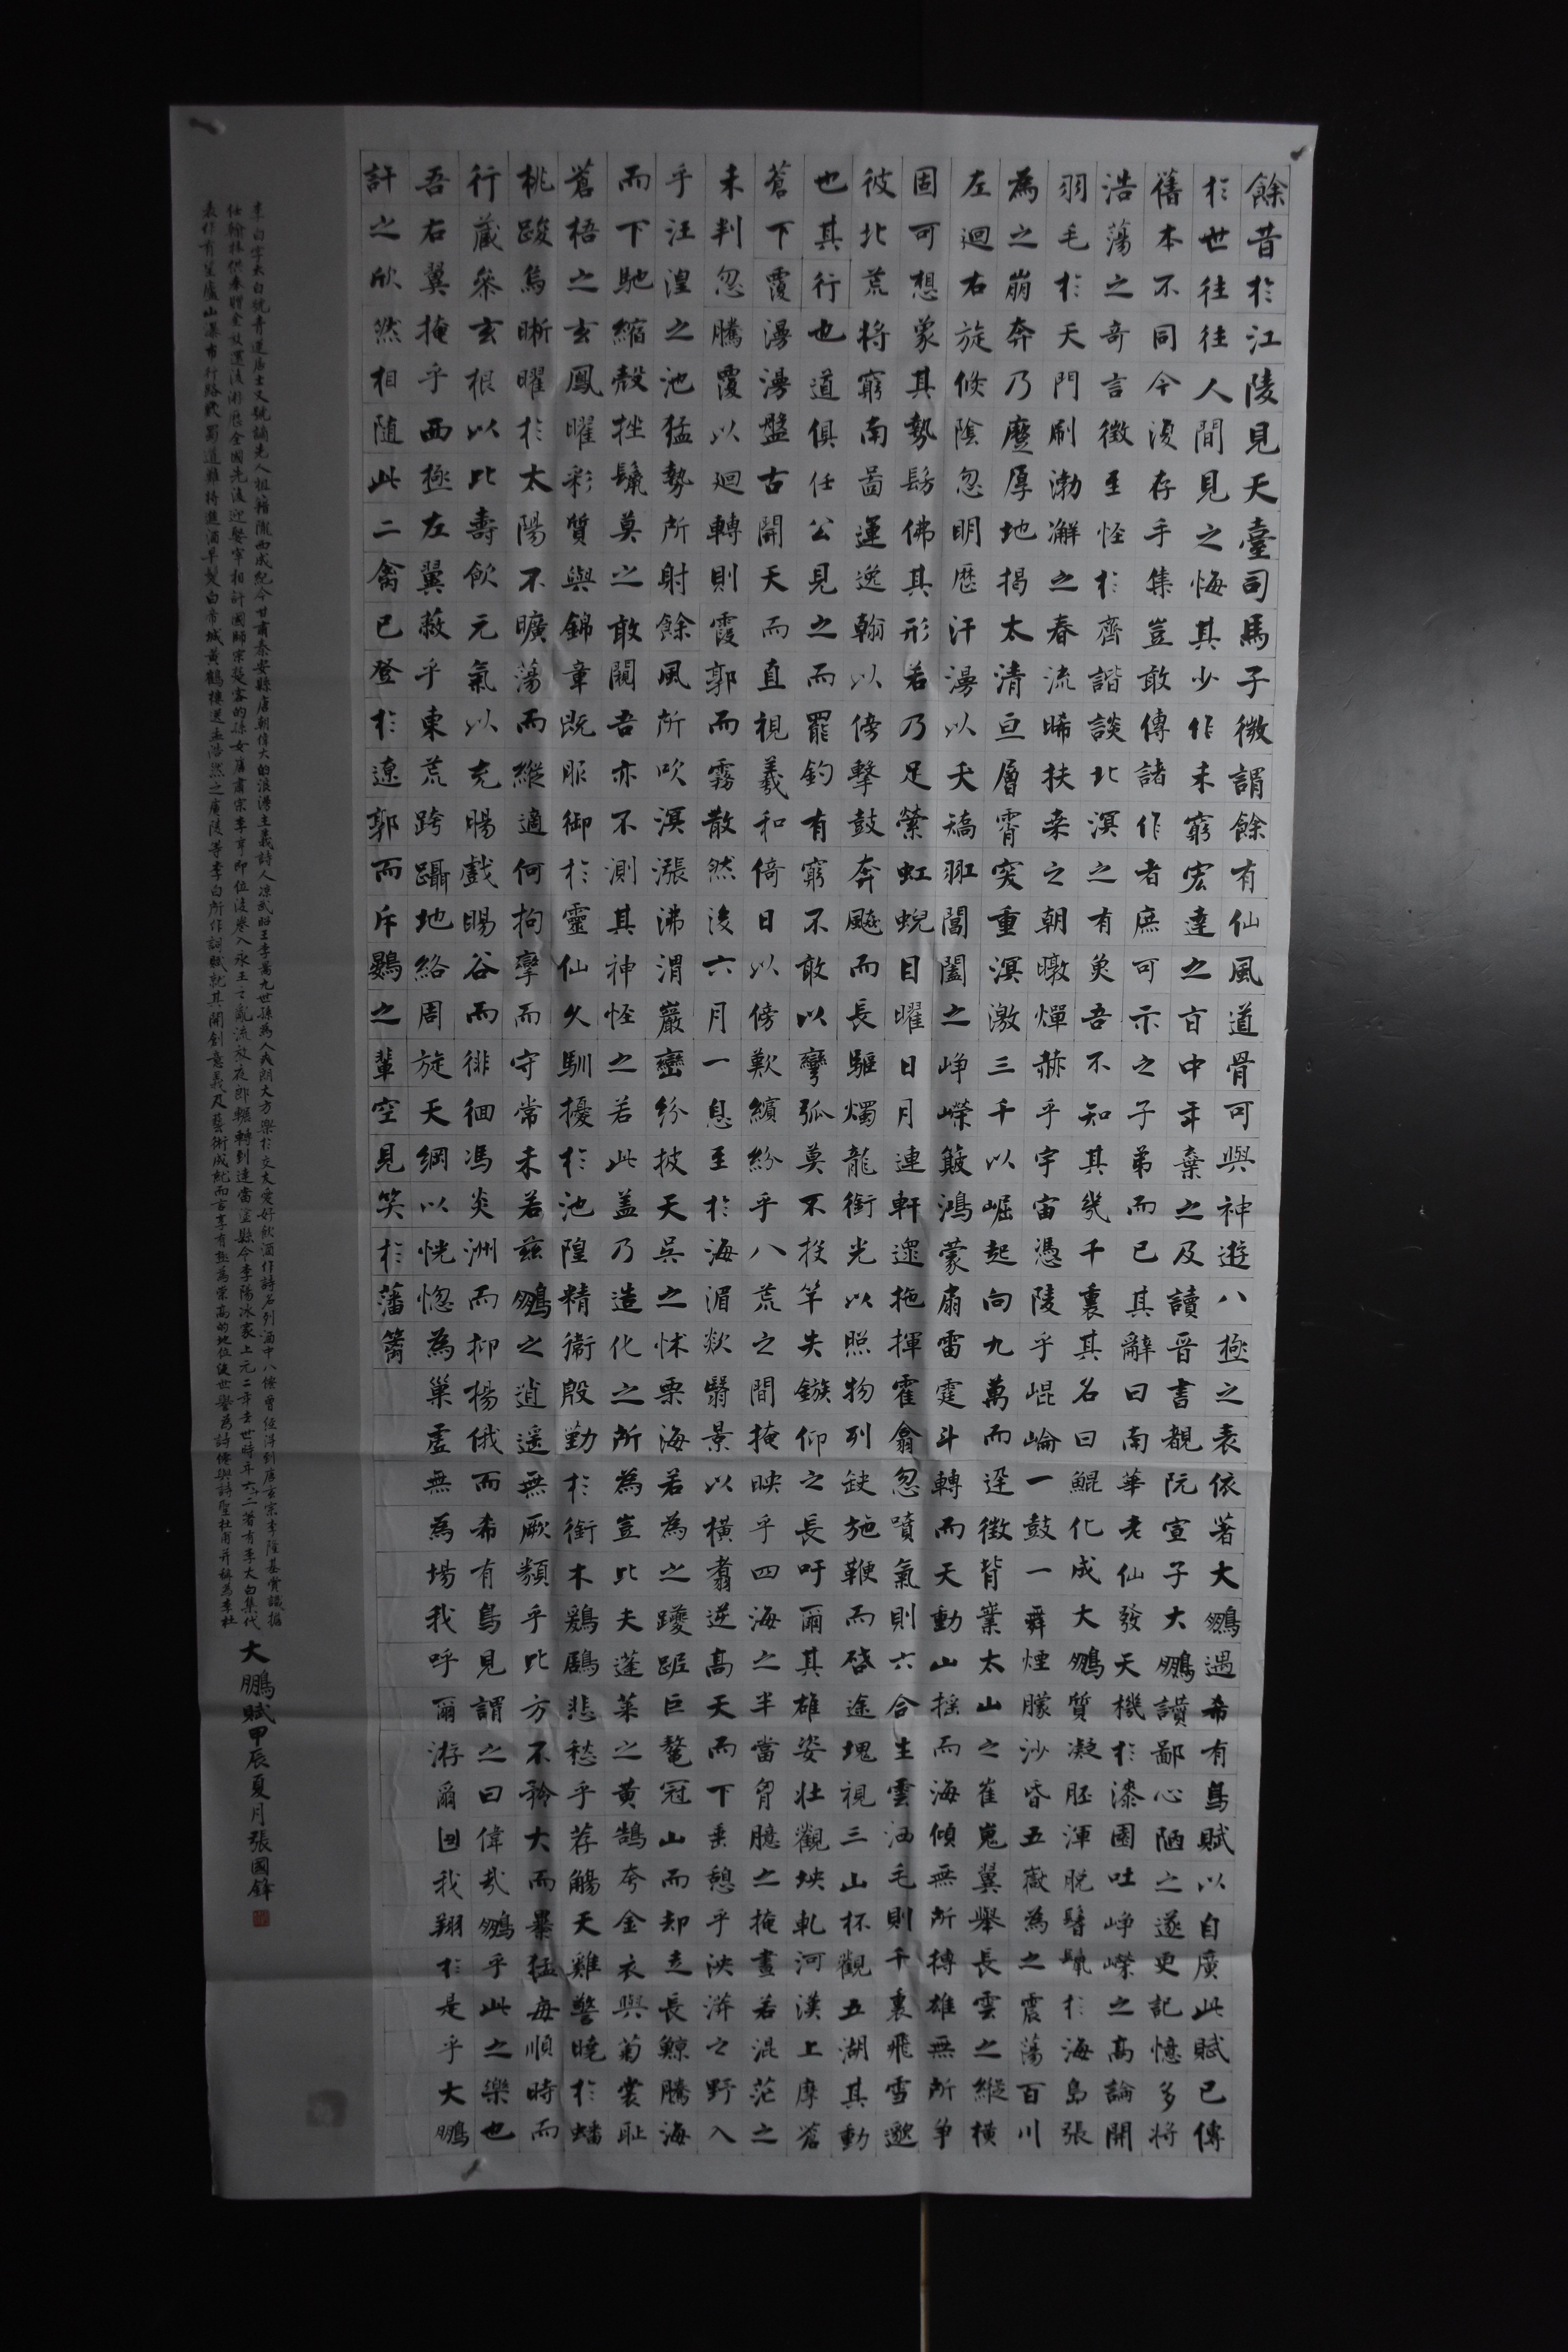 餘昔於江陵見天臺司馬子微謂餘有仙風道骨可與神遊八極之表依著大鵬遇希有鳥賦以自廣此賦已傳
於世往往人間見之悔其少作未窮宏達之旨中年棄之及讀晉書覩阮宣子大鵬讚鄙心陋之遂更記憶多將
舊本不同今復存手集豈敢傳諸作者庶可示之子弟而已其辭曰南華老仙發天機於漆園吐崢嶸之高論開
浩蕩之奇言徵至怪於齊諧談北溟之有魚吾不知其幾千裏其名曰鯤化成大鵬質凝胚渾脫鬐鬣於海島張
羽毛於天門刷渤澥之春流晞扶桑之朝暾燀赫乎宇宙憑陵乎崐崙一鼓一舞煙朦沙昏五嶽為之震蕩百川
為之崩奔乃蹷厚地揭太清亘層霄突重溟激三千以崛起向九萬而迅徵背業太山之崔嵬翼舉長雲之縱橫
左迴右旋倏陰忽明歷汗漫以夭矯羾閶闔之崢嶸簸鴻蒙扇雷霆斗轉而天動山搖而海傾無所搏雄無所爭
固可想象其勢髣佛其形若乃足縈虹蜺目曜日月連軒遝拖揮霍翕忽噴氣則六合生雲洒毛則千裏飛雪邈
彼北荒將窮南圖運逸翰以傍擊鼓奔飈而長驅燭龍銜光以照物列缺施鞭而啓途塊視三山杯觀五湖其動
也其行也道俱任公見之而罷釣有窮不敢以彎弧莫不投竿失鏃仰之長吁爾其雄姿壯觀坱軋河漢上摩蒼
蒼下覆漫漫盤古開天而直視羲和倚日以傍歎繽紛乎八荒之間掩映乎四海之半當胷臆之掩晝若混茫之
未判忽騰覆以迴轉則霞郭而霧散然後六月一息至於海湄欻翳景以橫翥逆高天而下垂憩乎泱漭之野入
乎汪湟之池猛勢所射餘風所吹溟漲沸渭巖巒紛披天吳之怵栗海若為之躨跜巨鼇冠山而却走長鯨騰海
而下馳縮殼挫鬣莫之敢闚吾亦不測其神怪之若此盖乃造化之所為豈比夫蓬萊之黃鵠夸金衣與菊裳恥
蒼梧之玄鳳曜彩質與錦章既服御於靈仙久馴擾於池隍精衛殷勤於銜木鶢鶋悲愁乎荐觴天雞警曉於蟠
桃踆烏晰曜於太陽不曠蕩而縱適何拘攣而守常未若茲鵬之逍遙無厥類乎比方不矜大而暴猛每順時而
行藏參玄根以比壽飲元氣以充腸戲暘谷而徘徊馮炎洲而抑揚俄而希有鳥見謂之曰偉哉鵬乎此之樂也
吾右翼掩乎西極左翼蔽乎東荒跨躡地絡周旋天綱以恍惚為巢虛無為場我呼爾游爾同我翔於是乎大鵬
許之欣然相隨此二禽已登於遼郭而斥鷃之輩空見笑於藩籬
李白字太白號青蓮居士又號謫仙人祖籍隴西成紀今甘肅秦安縣唐朝偉大的浪漫主義詩人涼武昭王李暠九世孫為人爽朗大方樂於交友愛好飲酒作詩名列酒中八僊曾經得到唐玄宗李隆基賞識擔
仕翰林供奉贈金放還後游歷全國先後迎娶宰相許圉師宗楚客的孫女唐肅宗李亨即位後卷入永王之亂流放夜郎輾轉到達當塗縣令李陽冰家上元二年去世時年六二著有李太白集代
表作有望廬山瀑布行路難蜀道難將進酒早發白帝城黃鶴樓送孟浩然之廣陵等李白所作詞賦就其開創意義及藝術成就而言享有極為崇高的地位後世譽為詩僊與詩聖杜甫并稱為李杜
大鵬賦甲辰夏月張國鋒